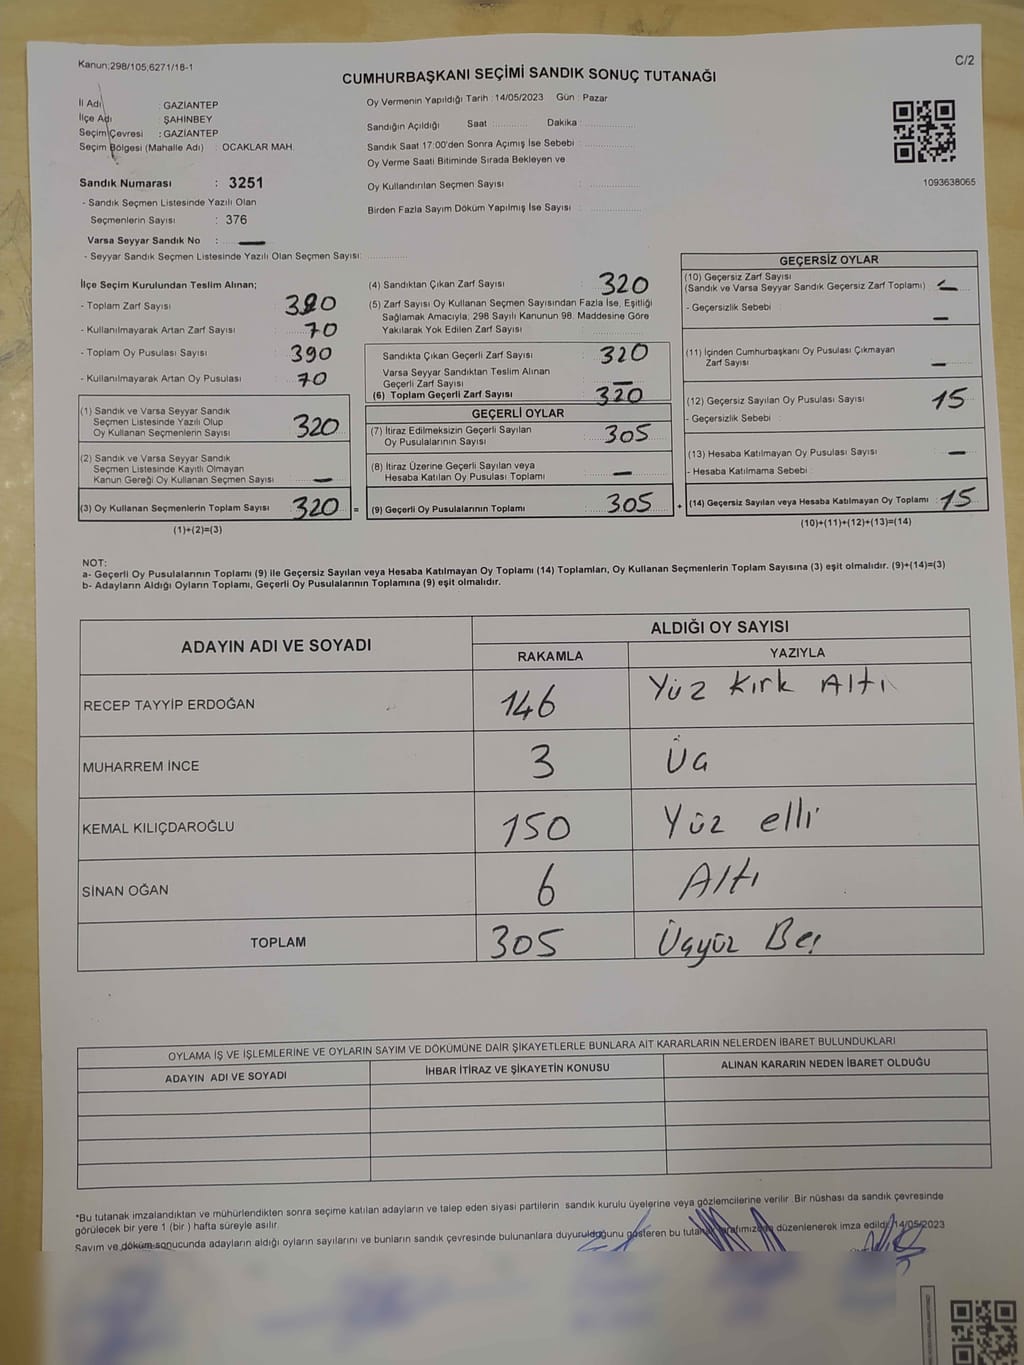 Kanun;298/105,6271/18-1
C/2
CUMHURBAŞKANI SEÇİMİ SANDIK SONUÇ TUTANAĞI
İl Adı : GAZİANTEP
İlçe Adı : ŞAHİNBEY
Seçim Çevresi : GAZİANTEP
Seçim Bölgesi (Mahalle Adı) : OCAKLAR MAH.
Sandık Numarası : 3251
- Sandık Seçmen Listesinde Yazılı Olan
Seçmenlerin Sayısı : 376
Varsa Seyyar Sandık No : —
- Seyyar Sandık Seçmen Listesinde Yazılı Olan Seçmen Sayısı:
Oy Vermenin Yapıldığı Tarih : 14/05/2023 Gün : Pazar
Sandığın Açıldığı Saat Dakika
Sandık Saat 17:00'den Sonra Açımış İse Sebebi :
Oy Verme Saati Bitiminde Sırada Bekleyen ve
Oy Kullandırılan Seçmen Sayısı :
Birden Fazla Sayım Döküm Yapılmış İse Sayısı :
1093638065
İlçe Seçim Kurulundan Teslim Alınan;
- Toplam Zarf Sayısı : 390
- Kullanılmayarak Artan Zarf Sayısı : 70
- Toplam Oy Pusulası Sayısı : 390
- Kullanılmayarak Artan Oy Pusulası : 70
(1) Sandık ve Varsa Seyyar Sandık
Seçmen Listesinde Yazılı Olup
Oy Kullanan Seçmenlerin Sayısı 320
(2) Sandık ve Varsa Seyyar Sandık
Seçmen Listesinde Kayıtlı Olmayan
Kanun Gereği Oy Kullanan Seçmen Sayısı —
(3) Oy Kullanan Seçmenlerin Toplam Sayısı 320 =
(1)+(2)=(3)
(4) Sandıktan Çıkan Zarf Sayısı : 320
(5) Zarf Sayısı Oy Kullanan Seçmen Sayısından Fazla İse, Eşitliği
Sağlamak Amacıyla, 298 Sayılı Kanunun 98. Maddesine Göre
Yakılarak Yok Edilen Zarf Sayısı :
Sandıkta Çıkan Geçerli Zarf Sayısı : 320
Varsa Seyyar Sandıktan Teslim Alınan
Geçerli Zarf Sayısı : —
(6) Toplam Geçerli Zarf Sayısı : 320
GEÇERLİ OYLAR
(7) İtiraz Edilmeksizin Geçerli Sayılan
Oy Pusulalarının Sayısı : 305
(8) İtiraz Üzerine Geçerli Sayılan veya
Hesaba Katılan Oy Pusulası Toplamı : —
(9) Geçerli Oy Pusulalarının Toplamı : 305 +
GEÇERSİZ OYLAR
(10) Geçersiz Zarf Sayısı
(Sandık ve Varsa Seyyar Sandık Geçersiz Zarf Toplamı) : —
- Geçersizlik Sebebi : —
(11) İçinden Cumhurbaşkanı Oy Pusulası Çıkmayan
Zarf Sayısı : —
(12) Geçersiz Sayılan Oy Pusulası Sayısı : 15
- Geçersizlik Sebebi :
(13) Hesaba Katılmayan Oy Pusulası Sayısı : —
- Hesaba Katılmama Sebebi :
(14) Geçersiz Sayılan veya Hesaba Katılmayan Oy Toplamı : 15
(10)+(11)+(12)+(13)=(14)
NOT:
a- Geçerli Oy Pusulalarının Toplamı (9) ile Geçersiz Sayılan veya Hesaba Katılmayan Oy Toplamı (14) Toplamları, Oy Kullanan Seçmenlerin Toplam Sayısına (3) eşit olmalıdır. (9)+(14)=(3)
b- Adayların Aldığı Oyların Toplamı, Geçerli Oy Pusulalarının Toplamına (9) eşit olmalıdır.
ADAYIN ADI VE SOYADI
ALDIĞI OY SAYISI
RAKAMLA YAZIYLA
RECEP TAYYİP ERDOĞAN 146 Yüz Kırk Altı
MUHARREM İNCE 3 Üç
KEMAL KILIÇDAROĞLU 150 Yüz elli
SİNAN OĞAN 6 Altı
TOPLAM 305 Üçyüz Beş
OYLAMA İŞ VE İŞLEMLERİNE VE OYLARIN SAYIM VE DÖKÜMÜNE DAİR ŞİKAYETLERLE BUNLARA AİT KARARLARIN NELERDEN İBARET BULUNDUKLARI
ADAYIN ADI VE SOYADI İHBAR İTİRAZ VE ŞİKAYETİN KONUSU ALINAN KARARIN NEDEN İBARET OLDUĞU
*Bu tutanak imzalandıktan ve mühürlendikten sonra seçime katılan adayların ve talep eden siyasi partilerin sandık kurulu üyelerine veya gözlemcilerine verilir. Bir nüshası da sandık çevresinde
görülecek bir yere 1 (bir ) hafta süreyle asılır.
Sayım ve döküm sonucunda adayların aldığı oyların sayılarını ve bunların sandık çevresinde bulunanlara duyurulduğunu gösteren bu tutanak tarafımızdan düzenlenerek imza edildi. 14/05/2023